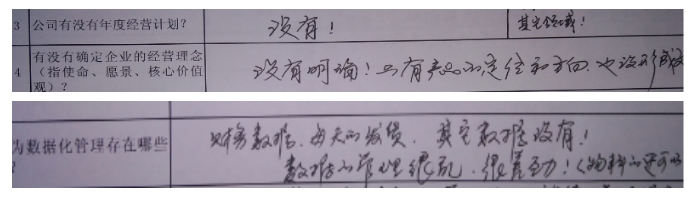 3 公司有没有年度经营计划? 没有!
4 有没有确定企业的经营理念
(指使命、愿景、核心价值
观)? 没有明确!只有产品的定位和方向.也没形成
为数据化管理存在哪些 财务数据.每天的发货.其它数据没有!
数据的管理很乱.很差劲!(物料的还可以